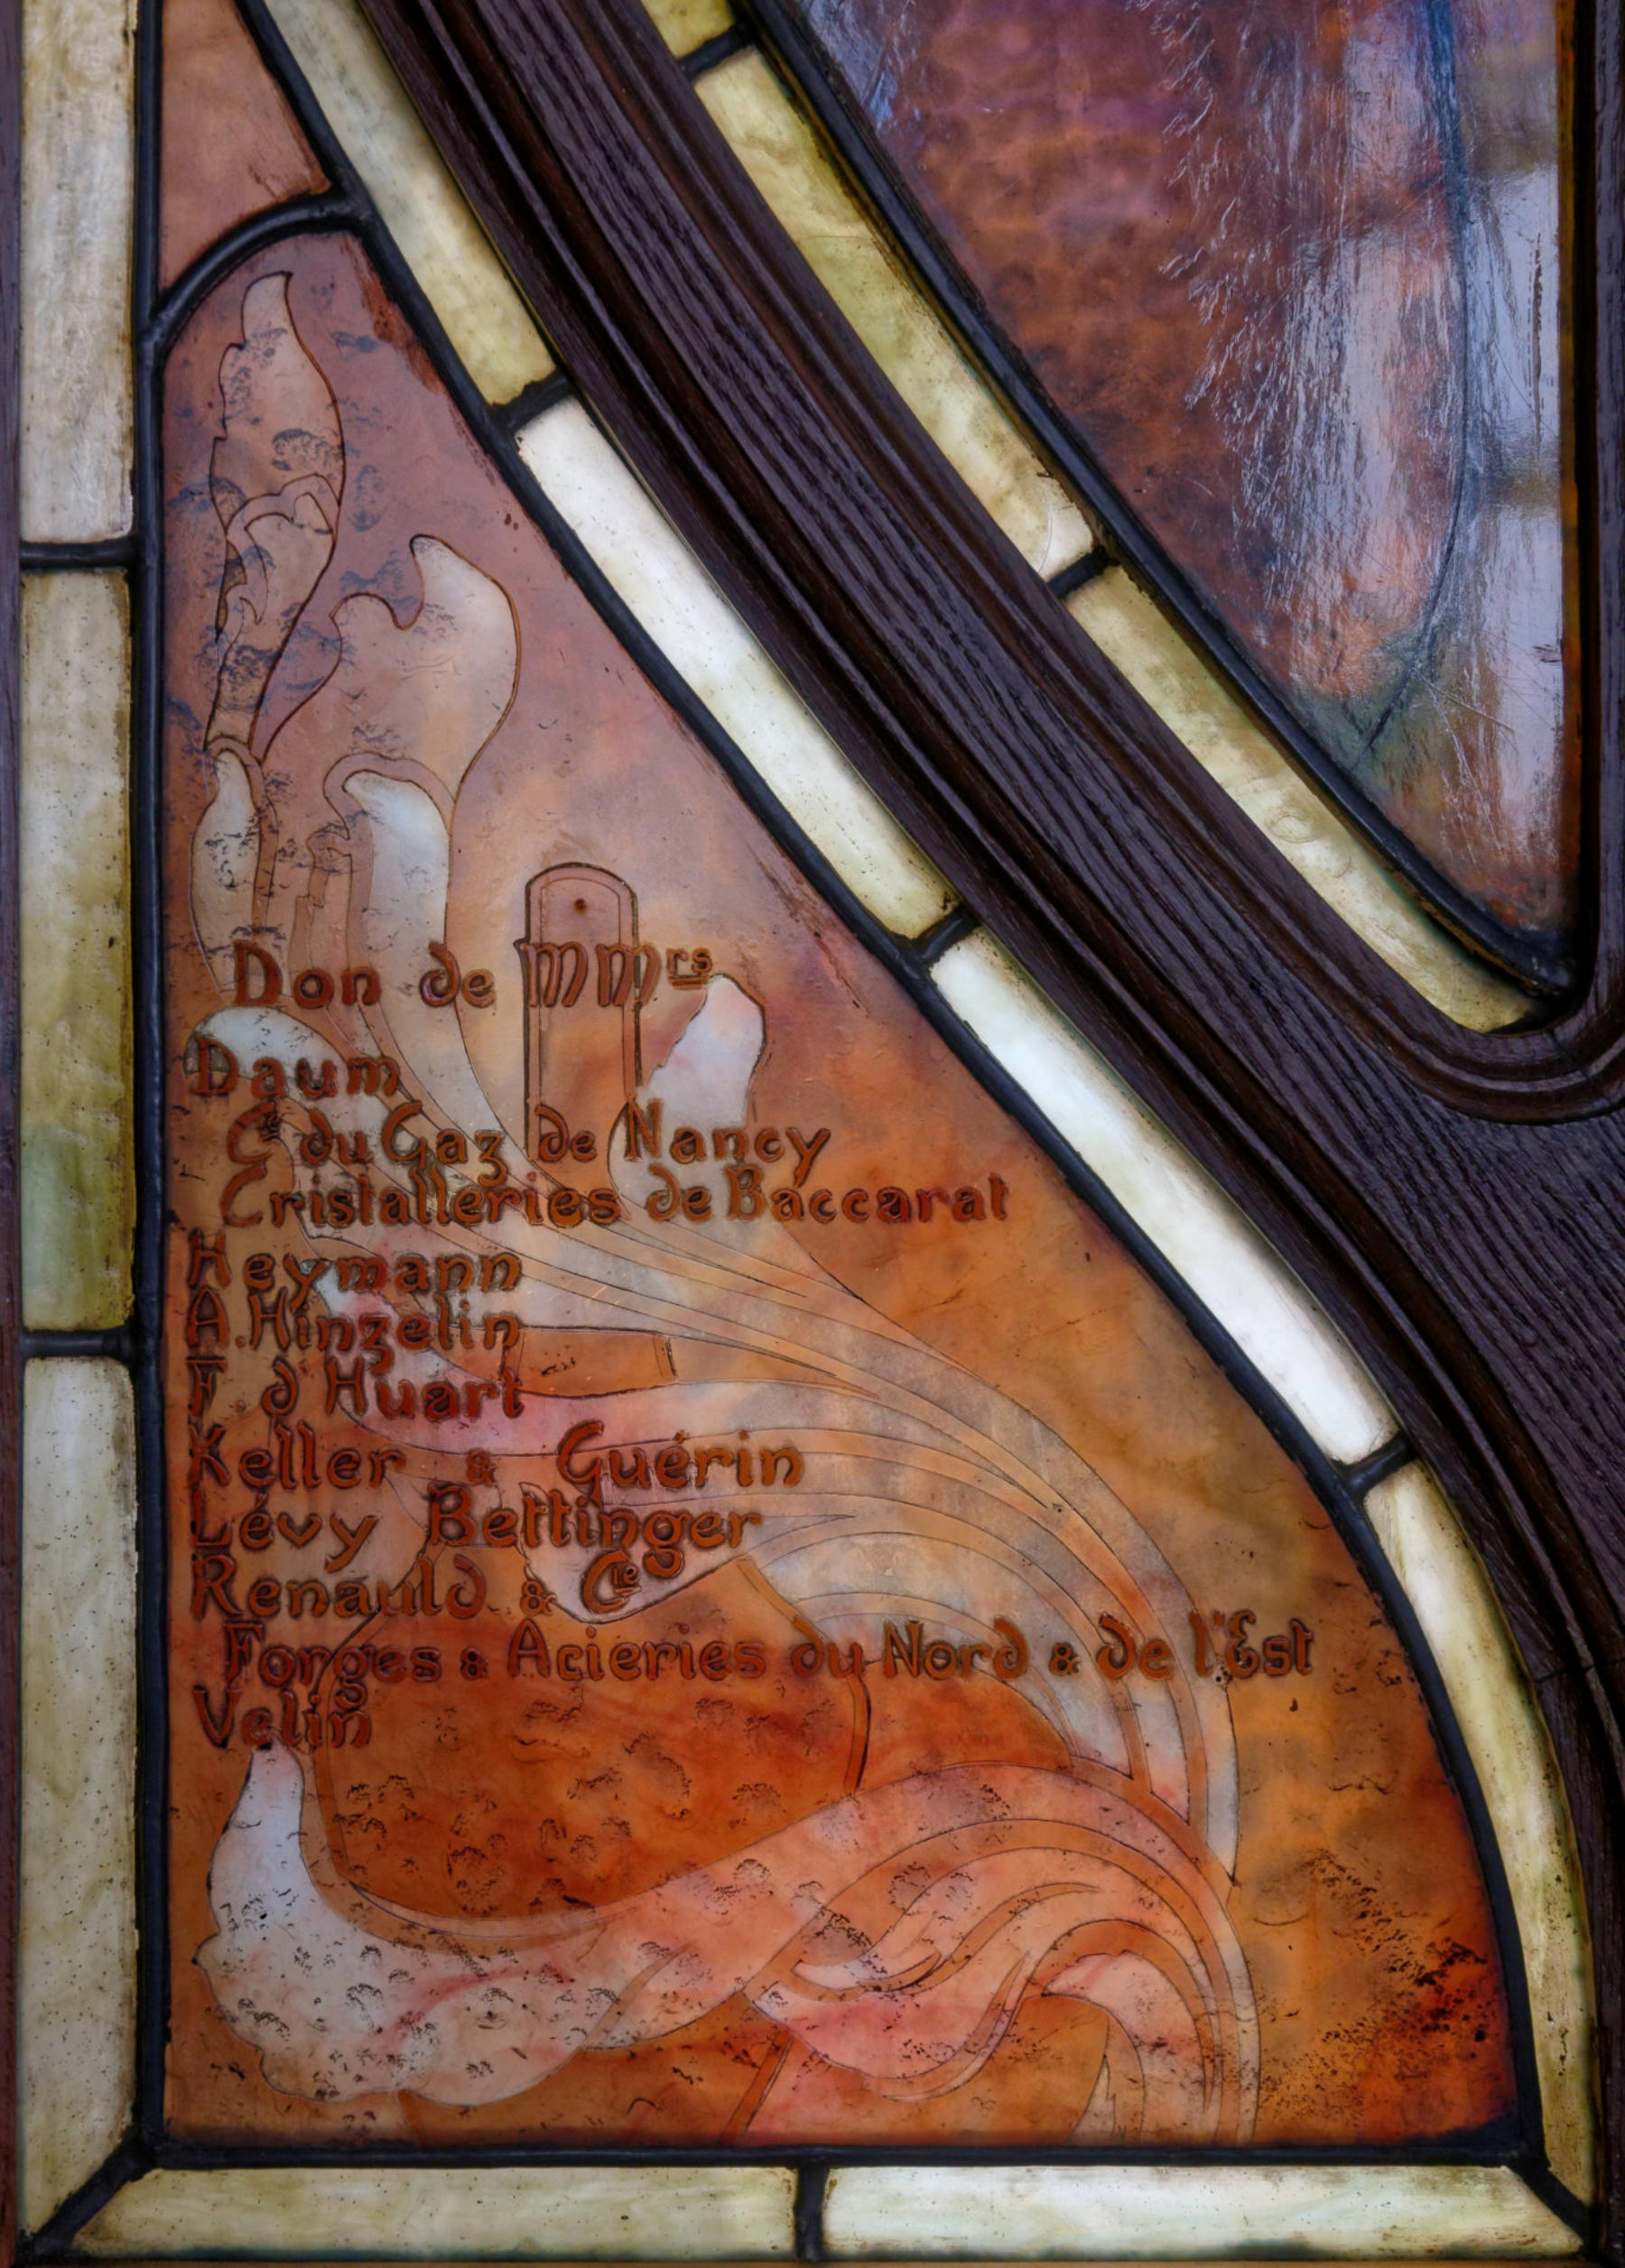 Don de MMrs
Daum
Cie du Gaz de Nancy
Cristalleries de Baccarat
Heymann
A. Hinzelin
F d'Huart
Keller & Guérin
Lévy Bettinger
Renauld & Cie
Forges & Acieries du Nord & de l'Est
Velin